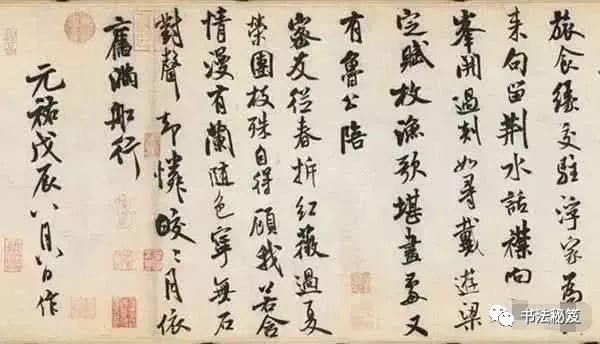 旅食緣交駐浮家為
来句留荆水話襟向
峯開過剡如尋戴遊梁
定賦枚漁歌堪畫處又
有魯公陪
密友從春拆紅薇過夏
榮團枝殊自得顧我若含
情漫有蘭随色寧無石
對聲却憐皎〻月依
舊滿船行
元祐戊辰八月八日作
书法秘笈